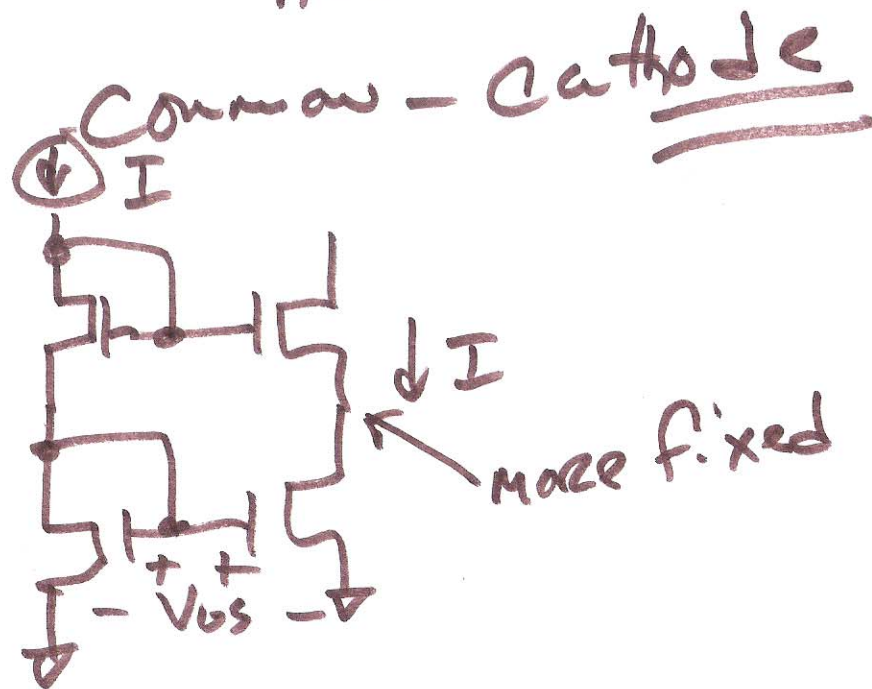 Common - Cathode
I
I
more fixed
+ +
- VGS -